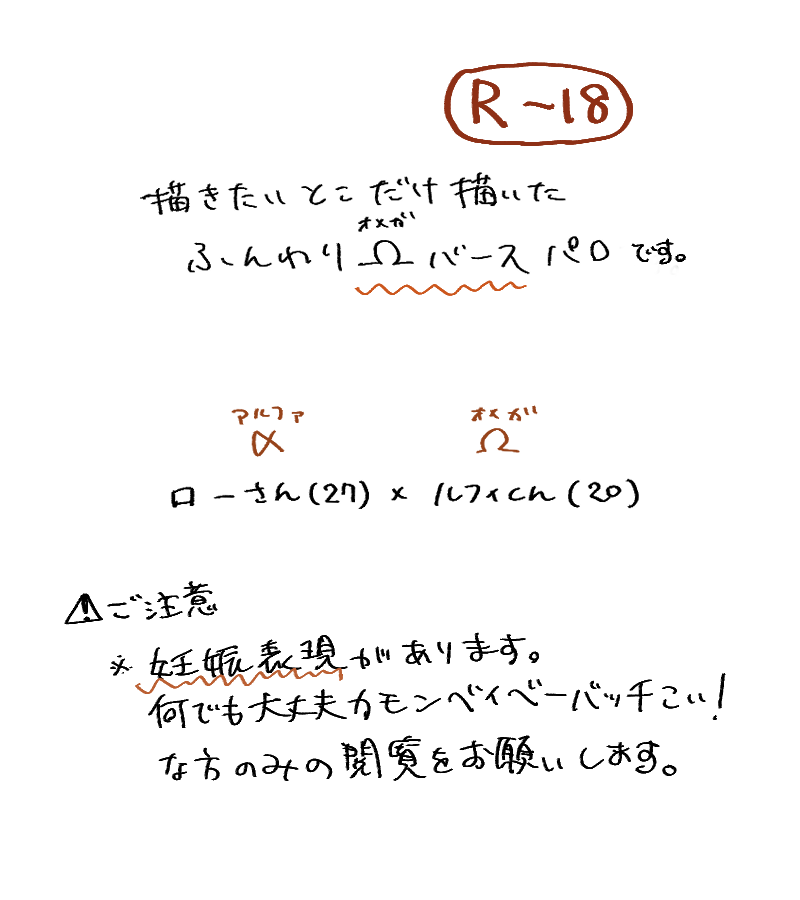 R-18
描きたいとこだけ描いた
オメガ
ふんわりΩバースパロです。
アルファ オメガ
α Ω
ローさん(27)×ルフィくん(20)
⚠ご注意
※妊娠表現があります。
何でも大丈夫カモンベイベーバッチこい!
な方のみの閲覧をお願いします。